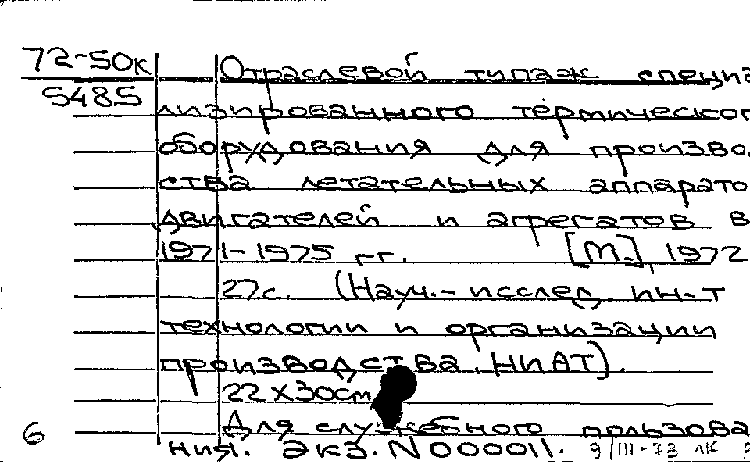 72-50к Отраслевой типаж специа
5485 лизированного термическог
оборудования для произво
ства летательных аппарато
двигателей и агрегатов в
1971-1975 гг. [М.] 1972
27с. (Науч.-исслед. ин-т
технологии и организации
производства. НИАТ).
22х30см
Для служебного пользова
6
ния. Экз. N 000011. 9/III-73 ЛК